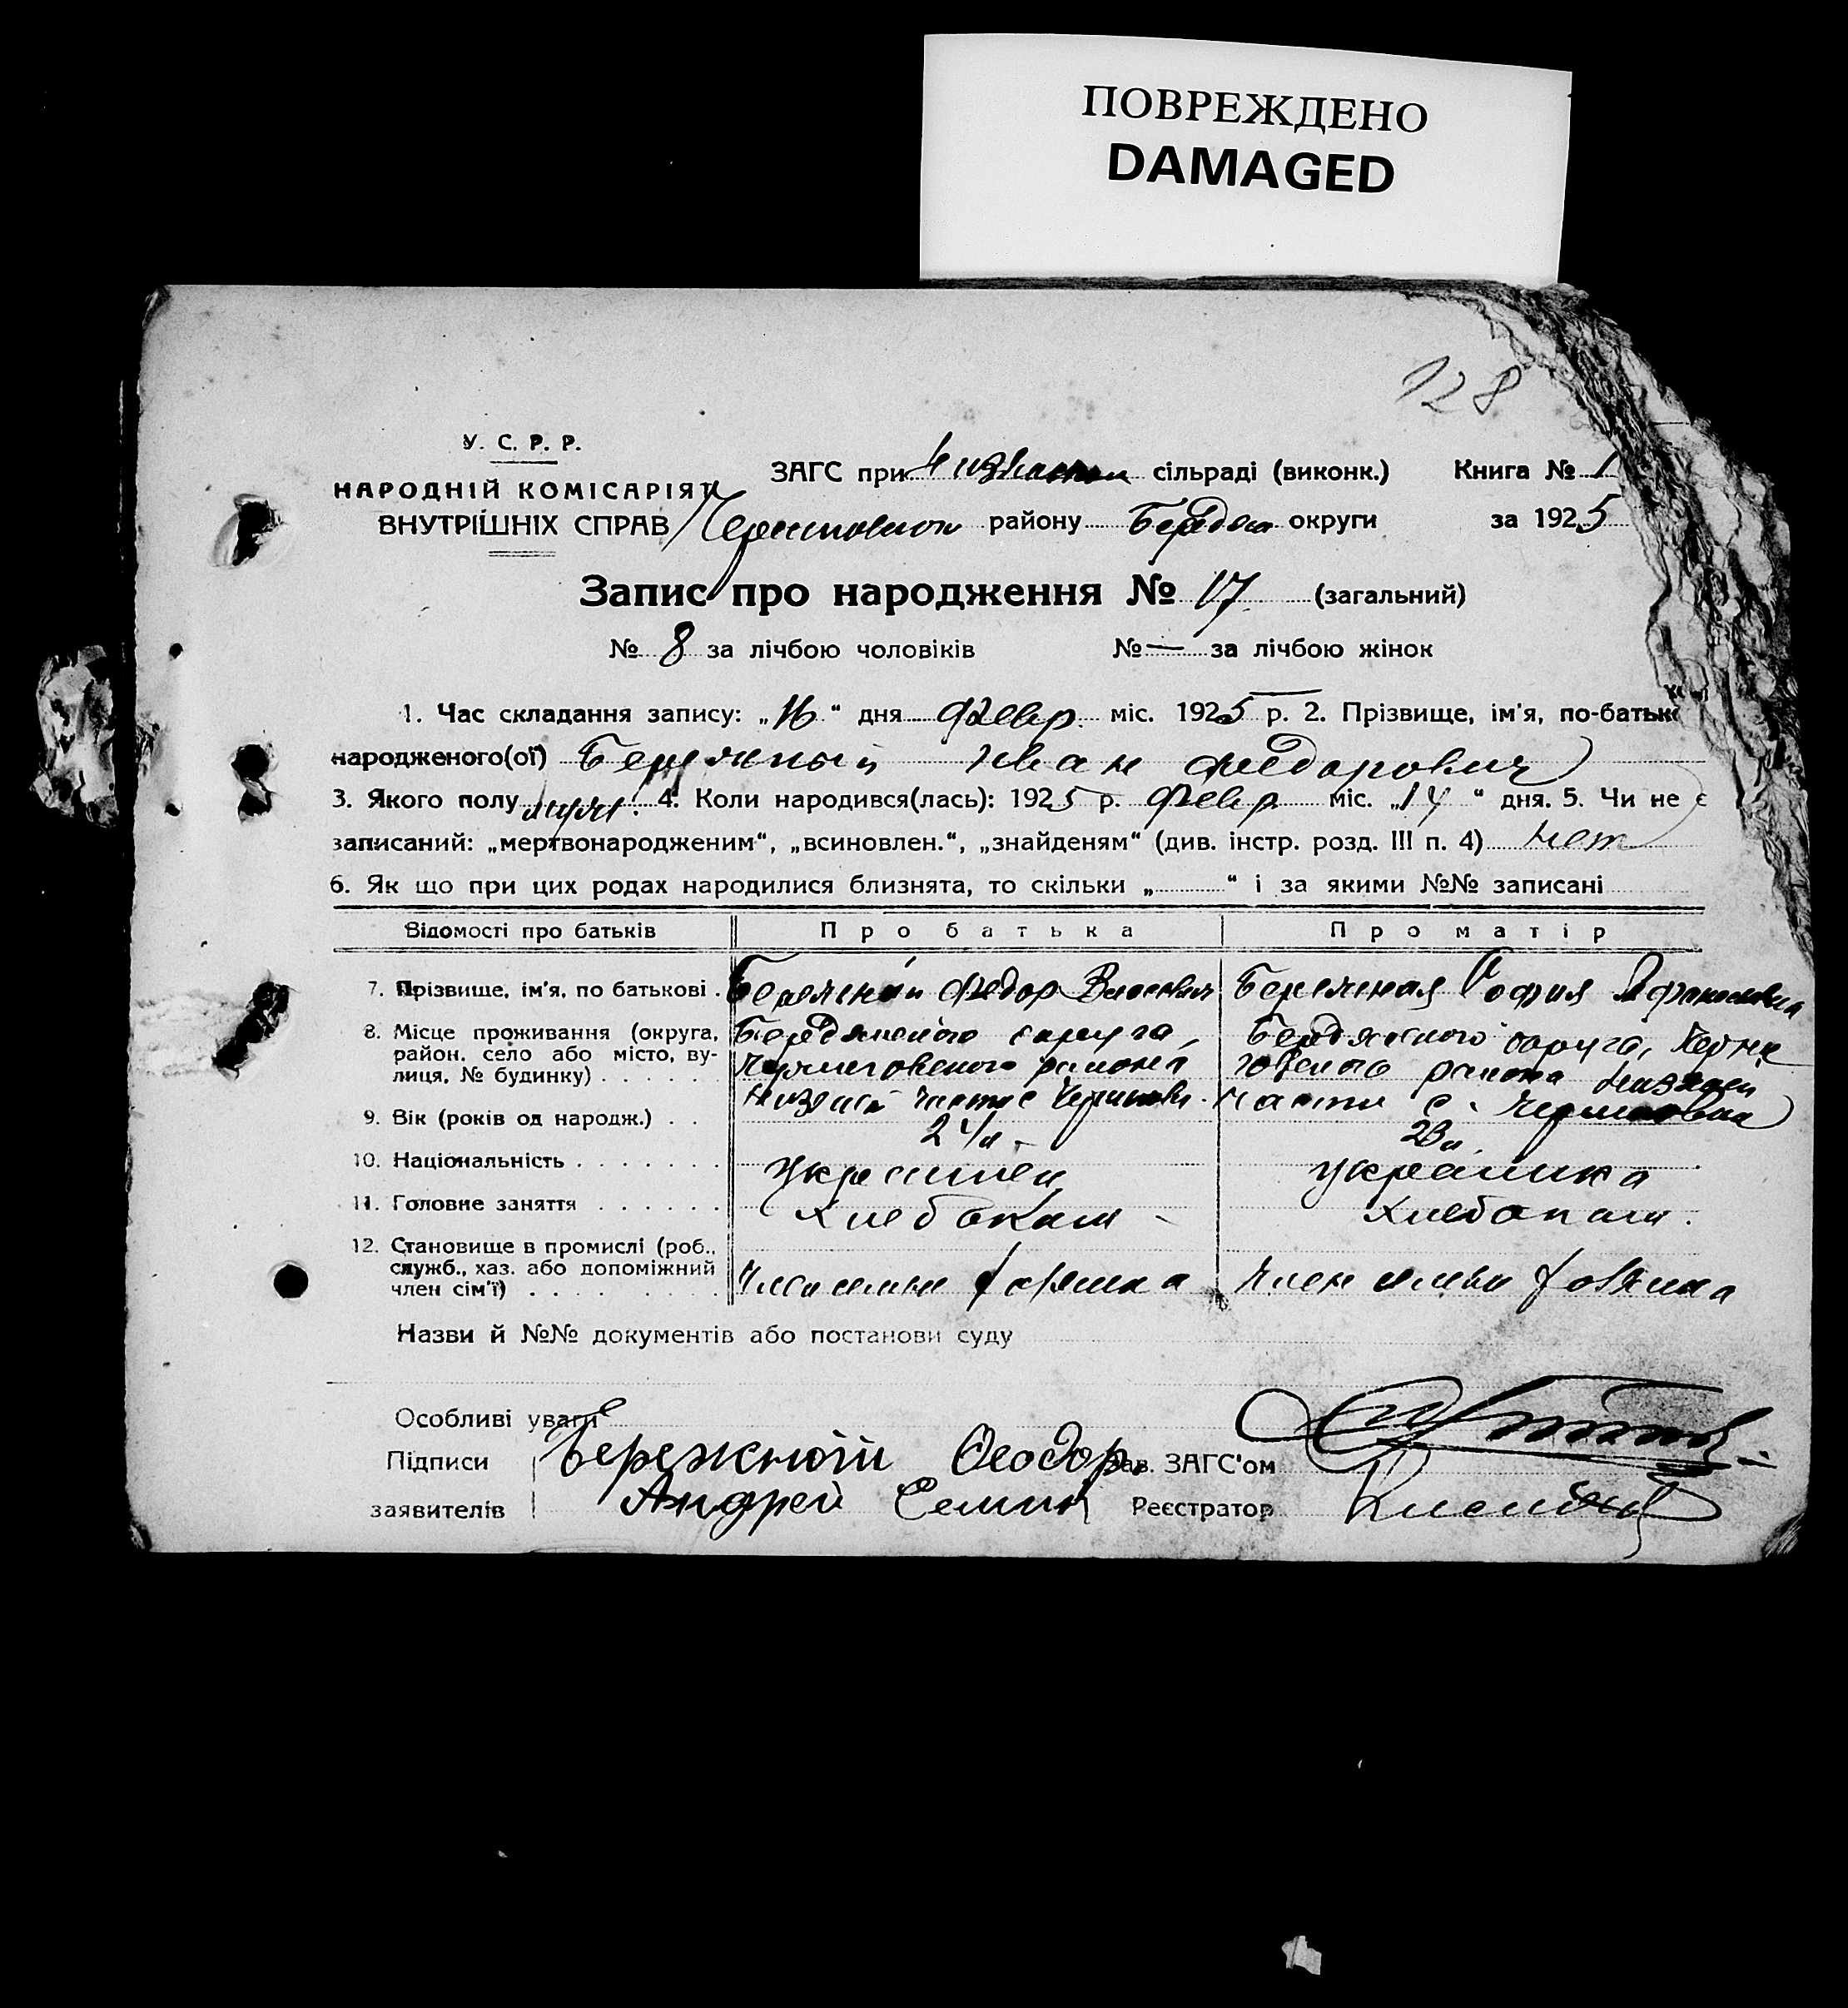 ПОВРЕЖДЕНО
DAMAGED
128
У. С. Р. Р.
НАРОДНІЙ КОМІСАРІЯТ
ВНУТРІШНІХ СПРАВ
ЗАГС при сільраді (виконк.) Книга № 1
району Бердян округи за 1925
Запис про народження № 17 (загальний)
№ 8 за лічбою чоловіків № — за лічбою жінок
1. Час складання запису: „16“ дня Февр. міс. 1925 р. 2. Прізвище, ім'я, по-батькв
народженого(ої) Бережный Иван Федорович
3. Якого полу муж. 4. Коли народився(лась): 1925 р. Февр міс. „14“ дня. 5. Чи не є
записаний: „мертвонародженим“, „всиновлен.“, „знайденям“ (див. інстр. розд. III п. 4) нет
6. Як що при цих родах народилися близнята, то скільки „ “ і за якими №№ записані
Відомості про батьків Про батька Про матір
7. Прізвище, ім'я, по батькові . Бережный Федор Бережная София
8. Місце проживання (округа, район, село або місто, вулиця, № будинку) . . . . . Бердянского округа, Черниговского района части с Бердянского округа, Черниговского района части с. Черниговка
9. Вік (років од народж.) . . 24 л. 23 л.
10. Національність . . . . . . . Украинец Украинка
11. Головне заняття . . . . . . Хлебопаш Хлебопаш.
12. Становище в промислі (роб., служб., хаз. або допоміжний член сім'ї) . . . . . . . Член семьи хозяина Член семьи хозяина
Назви й №№ документів або постанови суду
Особливі уваги
Підписи Бережной Феодор Зав. ЗАГС'ом
заявителів Андрей Семин Реєстратор